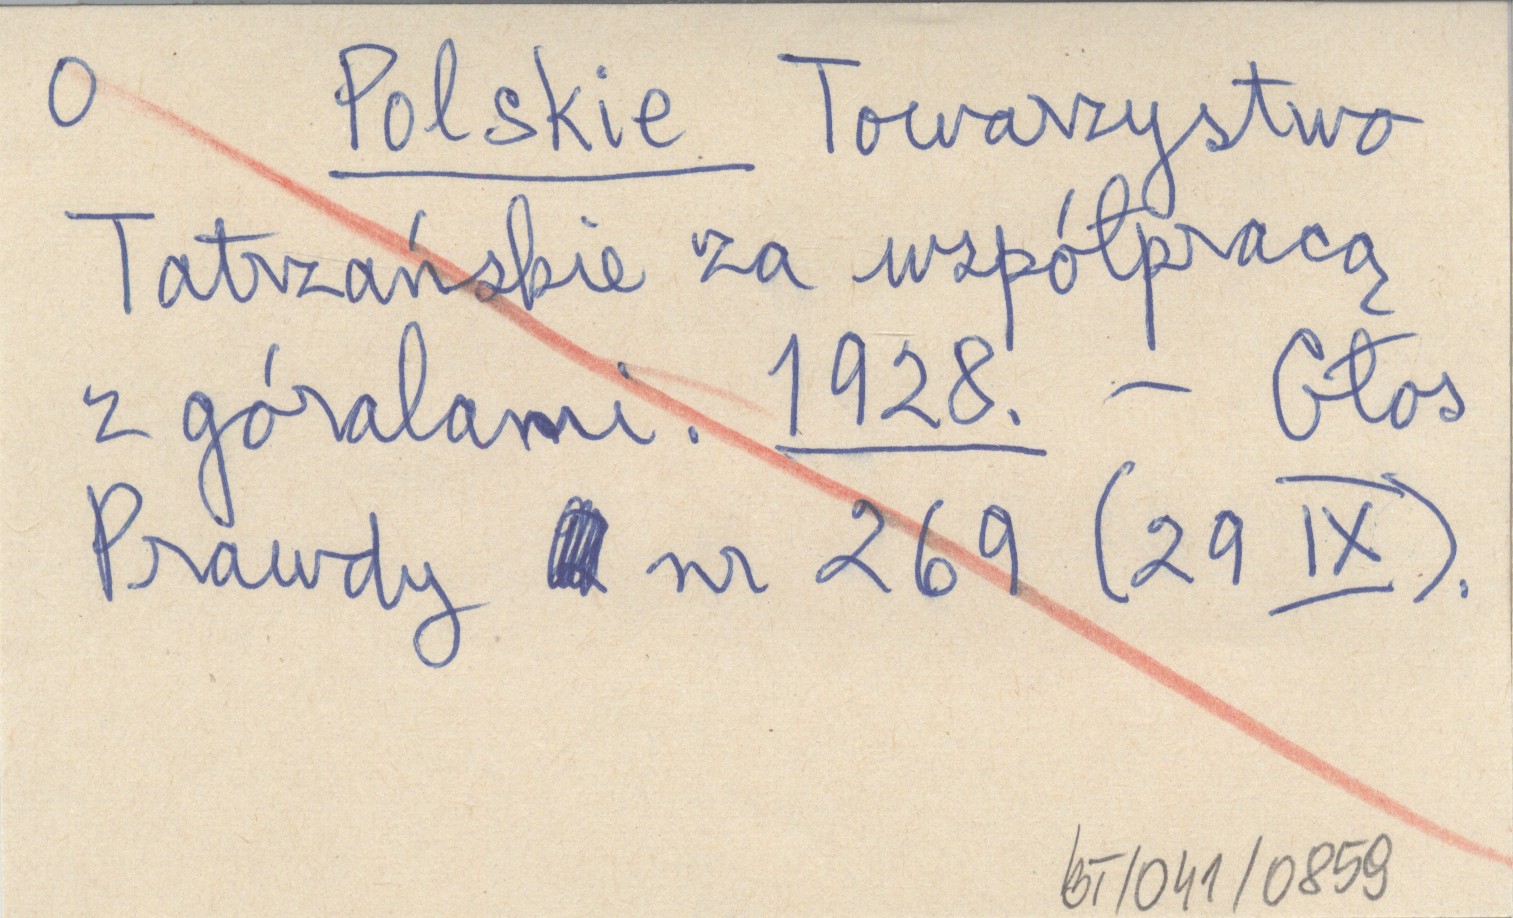 O Polskie Towarzystwo
Tatrzańskie za współpracą
z góralami. 1928. – Głos
Prawdy nr 269 (29 IX).
BT/041/0859